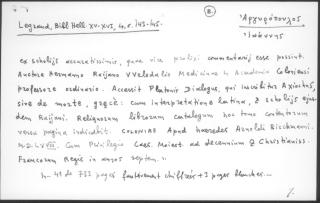 8.
Legrand, Bibl. Hell. XV-XVI, 4, σ. 143-145.
Ἀργυρόπουλος
Ἰωάννης
ex scholijs accuratissimis, quae vice prolixi commentarij esse possint.
Auctore Hermanno Raijano Medicinae in Academia Coloniensi
professore ordinario. Accessit Platonis Dialogus, qui inscribitur Axiochus,
sive de morte, graecè: cum interpretatione latina, & scholijs ejus-
dem Raijani. Reliquorum librorum catalogum hoc tomo contentorum
versa pagina indicabit. COLONIAE Apud haeredes Arnoldi Birckmanni.
Cum Privilegio Caes. Maiest. ad decennium & Christianiss.
Francorum Regis in annos septem.
In-4° de 733 pages fautivement chiffrées + 3 pages blanches